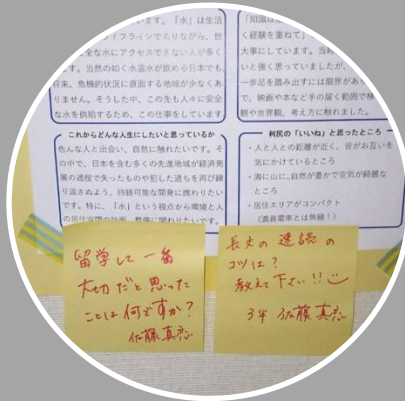 います。「水」は生活
ライフラインでありながら、世
全な水にアクセスできない人が多く
ます。当然の如く水道水が飲める日本でも
将来、危機的状況に直面する地域が少なくあ
りません。そうした中、この先も人々に安全
な水を供給するため、この仕事をしています
「知識は
く経験を重ねて」
大事にしています。当時
いと強く思っていましたが、
一歩足を踏み出すには限界があ
で、映画や本など手の届く範囲で様
観や世界観、考え方に触れました。
これからどんな人生にしたいと思っているか
色んな人と出会い、自然に触れたいです。そ
の中で、日本を含む多くの先進地域が経済発
展の過程で失ったものや犯した過ちを再び繰
り返さぬよう、持続可能な開発に携わりたい
です。特に、「水」という視点から環境と人
の居住空間の計画、整備に関わりたいです。
利尻の「いいね」と思ったところ
・人と人との距離が近く、皆がお互いを
気にかけているところ
・海に山に、自然が豊かで空気が綺麗な
ところ
・居住エリアがコンパクト
（満員電車とは無縁！）
留学して一番
大切だと思った
ことは何ですか？
佐藤真
長文の速読の
コツは？
教えて下さい!!
3年 佐藤真